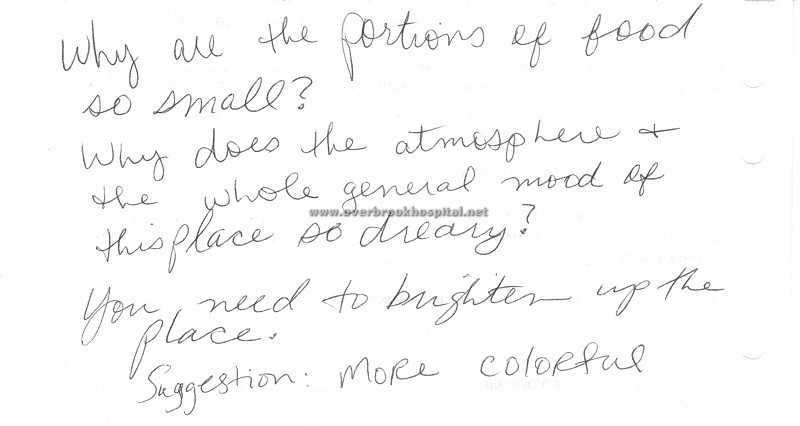 Why are the portions of food
so small?
Why does the atmosphere +
the whole general mood of
www.overbrookhospital.net
this place so dreary?
You need to brighten up the
place.
Suggestion: MoRe colorful